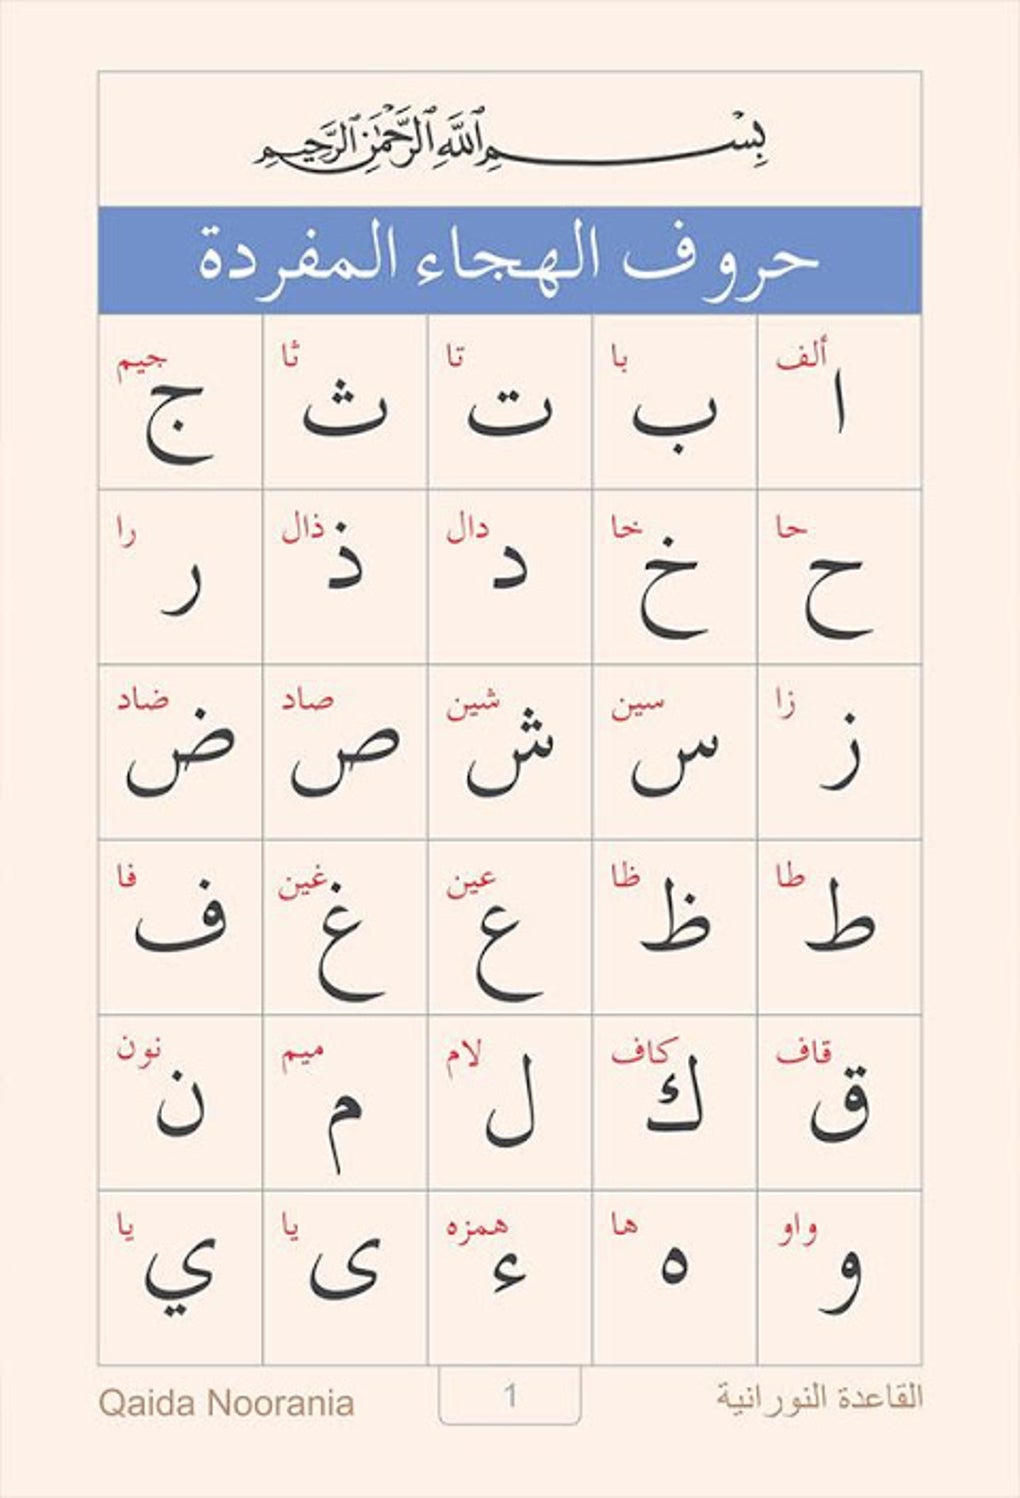 بِسْمِ ٱللَّهِ ٱلرَّحْمَٰنِ ٱلرَّحِيمِ
حروف الهجاء المفردة
ألف با تا ثا جيم
ا ب ت ث ج
حا خا دال ذال را
ح خ د ذ ر
زا سين شين صاد ضاد
ز س ش ص ض
طا ظا عين غين فا
ط ظ ع غ ف
قاف كاف لام ميم نون
ق ك ل م ن
واو ها همزه يا يا
و ه ء ى ي
القاعدة النورانية 1 Qaida Noorania